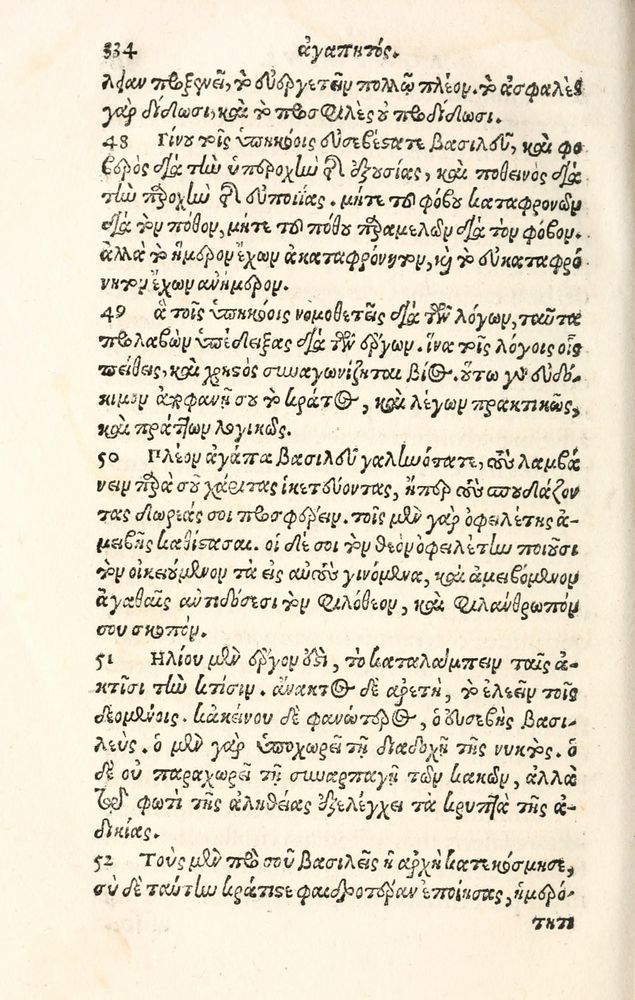 334 ἀγαπητός.
λίαν προξενεῖ, τὸ εὐεργετεῖν πολλῷ πλέον. τὸ ἀσφαλὲς
γὰρ δίδωσι, καὶ τὸ προσφιλὲς οὐ προδίδωσι.
48 Γίνου τοῖς ὑπηκόοις εὐσεβέστατε βασιλεῦ, καὶ φο-
βερὸς διὰ τὴν ὑπεροχὴν τῆς ἐξουσίας, καὶ ποθεινὸς διὰ
τὴν παροχὴν τῆς εὐποιΐας. μήτε τοῦ φόβου καταφρονῶν
διὰ τὸν πόθον, μήτε τοῦ πόθου παραμελῶν διὰ τὸν φόβον.
ἀλλὰ τὸ ἥμερον ἔχων ἀκαταφρόνητον, καὶ τὸ εὐκαταφρό
νητον ἔχων ἀνήμερον.
49 ἃ τοῖς ὑπηκόοις νομοθετεῖς διὰ τῶν λόγων, ταῦτα
προλαβὼν ὑπέδειξας διὰ τῶν ἔργων. ἵνα τοῖς λόγοις οἷς
πείθεις, καὶ χρηστὸς συναγωνίζηται βίος. οὕτω γὰρ εὐδό-
κιμον ἀποφανεῖ σου τὸ κράτος, καὶ λέγων πρακτικῶς,
καὶ πράττων λογικῶς.
50 Πλέον ἀγάπα βασιλεῦ γαληνότατε, τοὺς λαμβά
νειν παρὰ σοῦ χάριτας ἱκετεύοντας, ἤπερ τοὺς σπουδάζον
τας δωρεάς σοι προσφέρειν. τοῖς μὲν γὰρ ὀφειλέτης ἀ-
μειβῆς καθίστασαι. οἱ δέ σοι τὸν θεὸν ὀφειλέτην ποιοῦσι
τὸν οἰκειούμενον τὰ εἰς αὐτοὺς γινόμενα, καὶ ἀμειβόμενον
ἀγαθαῖς ἀντιδόσεσι τὸν φιλόθεον, καὶ φιλάνθρωπόν
σου σκοπόν.
51 Ἡλίου μὲν ἔργον ἐστὶ, τὸ καταλάμπειν ταῖς ἀ-
κτῖσι τὴν κτίσιν. ἄνακτος δὲ ἀρετὴ, τὸ ἐλεεῖν τοῖς
δεομένοις. κἀκείνου δὲ φανώτερος, ὁ εὐσεβὴς βασι-
λεύς. ὁ μὲν γὰρ ὑποχωρεῖ τῇ διαδοχῇ τῆς νυκτός. ὁ
δὲ οὐ παραχωρεῖ τῇ συναρπαγῇ τῶν κακῶν, ἀλλὰ
τῷ φωτὶ τῆς ἀληθείας ἐξελέγχει τὰ κρυπτὰ τῆς ἀ-
δικίας.
52 Τοὺς μὲν πρὸ σοῦ βασιλεῖς ἡ ἀρχὴ κατεκόσμησε,
σὺ δὲ ταύτην κράτιστε φαιδροτέραν ἐποίησας, ἡμερό-
τητι